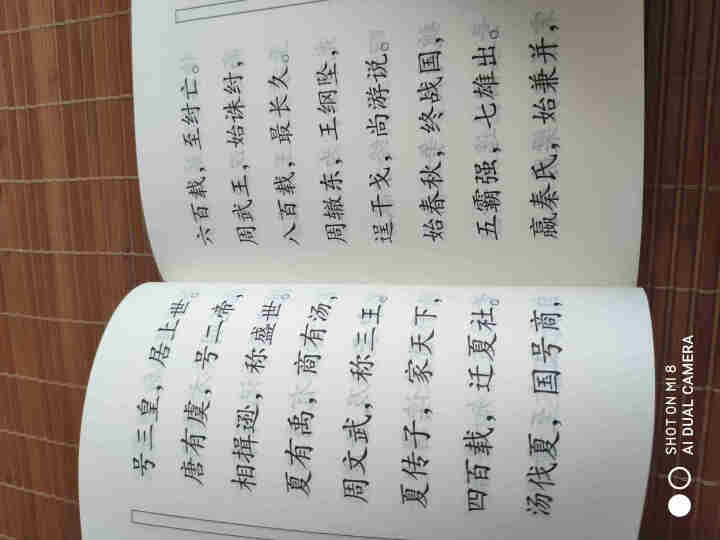 号三皇，居上世。
唐有虞，号二帝，
相揖逊，称盛世。
夏有禹，商有汤，
周文武，称三王。
夏传子，家天下，
四百载，迁夏社。
汤伐夏，国号商，
六百载，至纣亡。
周武王，始诛纣，
八百载，最长久。
周辙东，王纲坠，
逞干戈，尚游说。
始春秋，终战国，
五霸强，七雄出。
嬴秦氏，始兼并，
SHOT ON MI 8
AI DUAL CAMERA